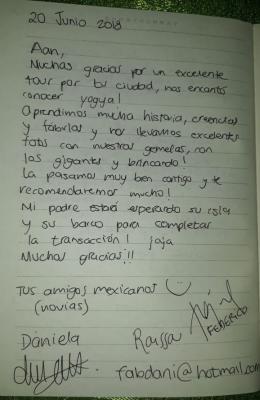 20 Junio 2018
Aan,
Muchas gracias por un excelente
tour por tu ciudad, nos encantó
conocer yogya!
Aprendimos mucha historia, creencias
y fábulas y nos llevamos excelentes
fotos con nuestras gemelas, con
los gigantes y brincando!
La pasamos muy bien contigo y te
recomendaremos mucho!
Mi padre estará esperando su isla
y su barco para completar
la transacción! jaja
Muchas gracias!!
Tus amigos mexicanos
(novias)
FEDERICO
Daniela
Raissa
fabdani@hotmail.com